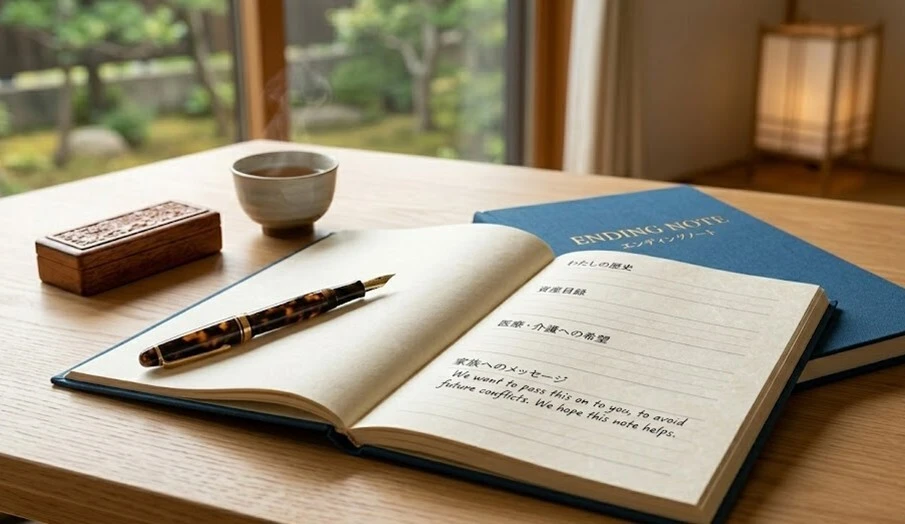 ENDING NOTE
エンディングノート
わたしの歴史
資産目録
医療・介護への希望
家族へのメッセージ
We want to pass this on to you, to avoid
future conflicts. We hope this note helps.